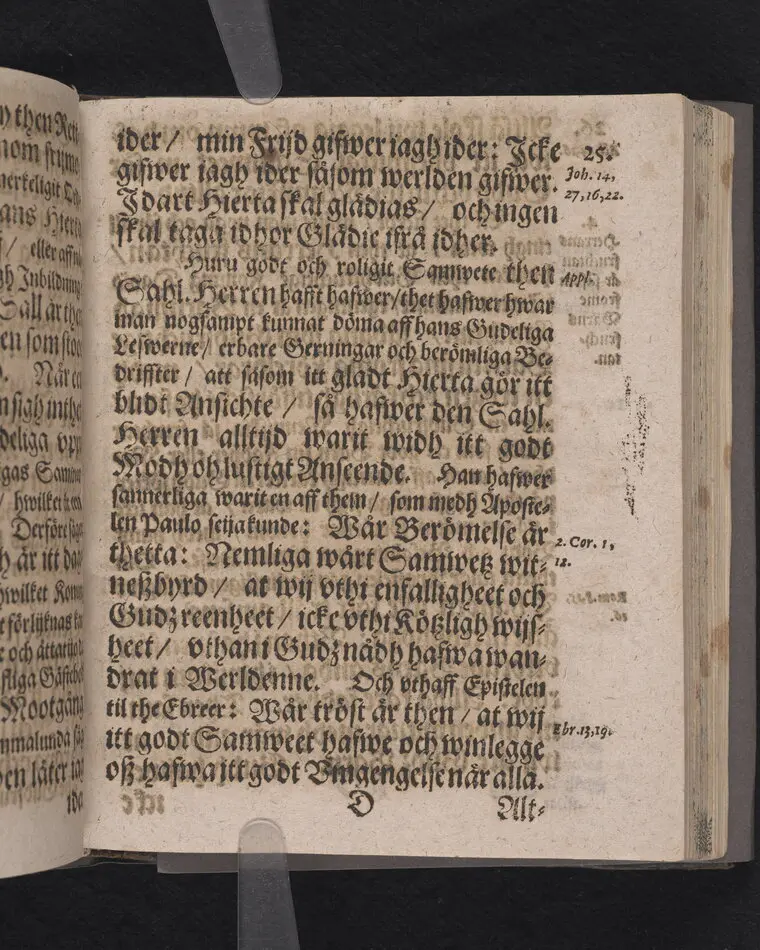 ider / min Frijd gifwer iagh ider: Icke
25.
gifwer iagh ider såsom werlden gifwer.
Joh. 14,
27, 16, 22.
Idart Hierta skal glädias / och ingen
skal taga idhor Glädie ifrå idher.
Huru godt och roligit Samwete then
Appl.
Sahl. Herren hafft hafwer / thet hafwer hwar
man nogsampt kunnat döma aff hans Gudeliga
Lefwerne / erbare Gerningar och berömliga Be-
driffter / att såsom itt gladt Hierta gör itt
blidt Ansichte / så hafwer den Sahl.
Herren alltijd warit widh itt godt
Modh oh lustigt Anseende. Han hafwer
sannerliga warit en aff them / som medh Aposte-
len Paulo seija kunde: Wår Berömelse är
2. Cor. 1,
12.
thetta: Nemliga wårt Samwetz wit-
neßbyrd / at wij vthi enfalligheet och
Gudz reenheet / icke vthi Kötzligh wijs-
heet / vthan i Gudz nådh hafwa wan-
drat i Werldenne. Och vthaff Epistelen
til the Ebreer: Wår tröst är then / at wij
Ebr. 13, 19.
itt godt Samweet hafwe och winlegge
oß hafwa itt godt Vmgengelse när alla.
D
Alt-